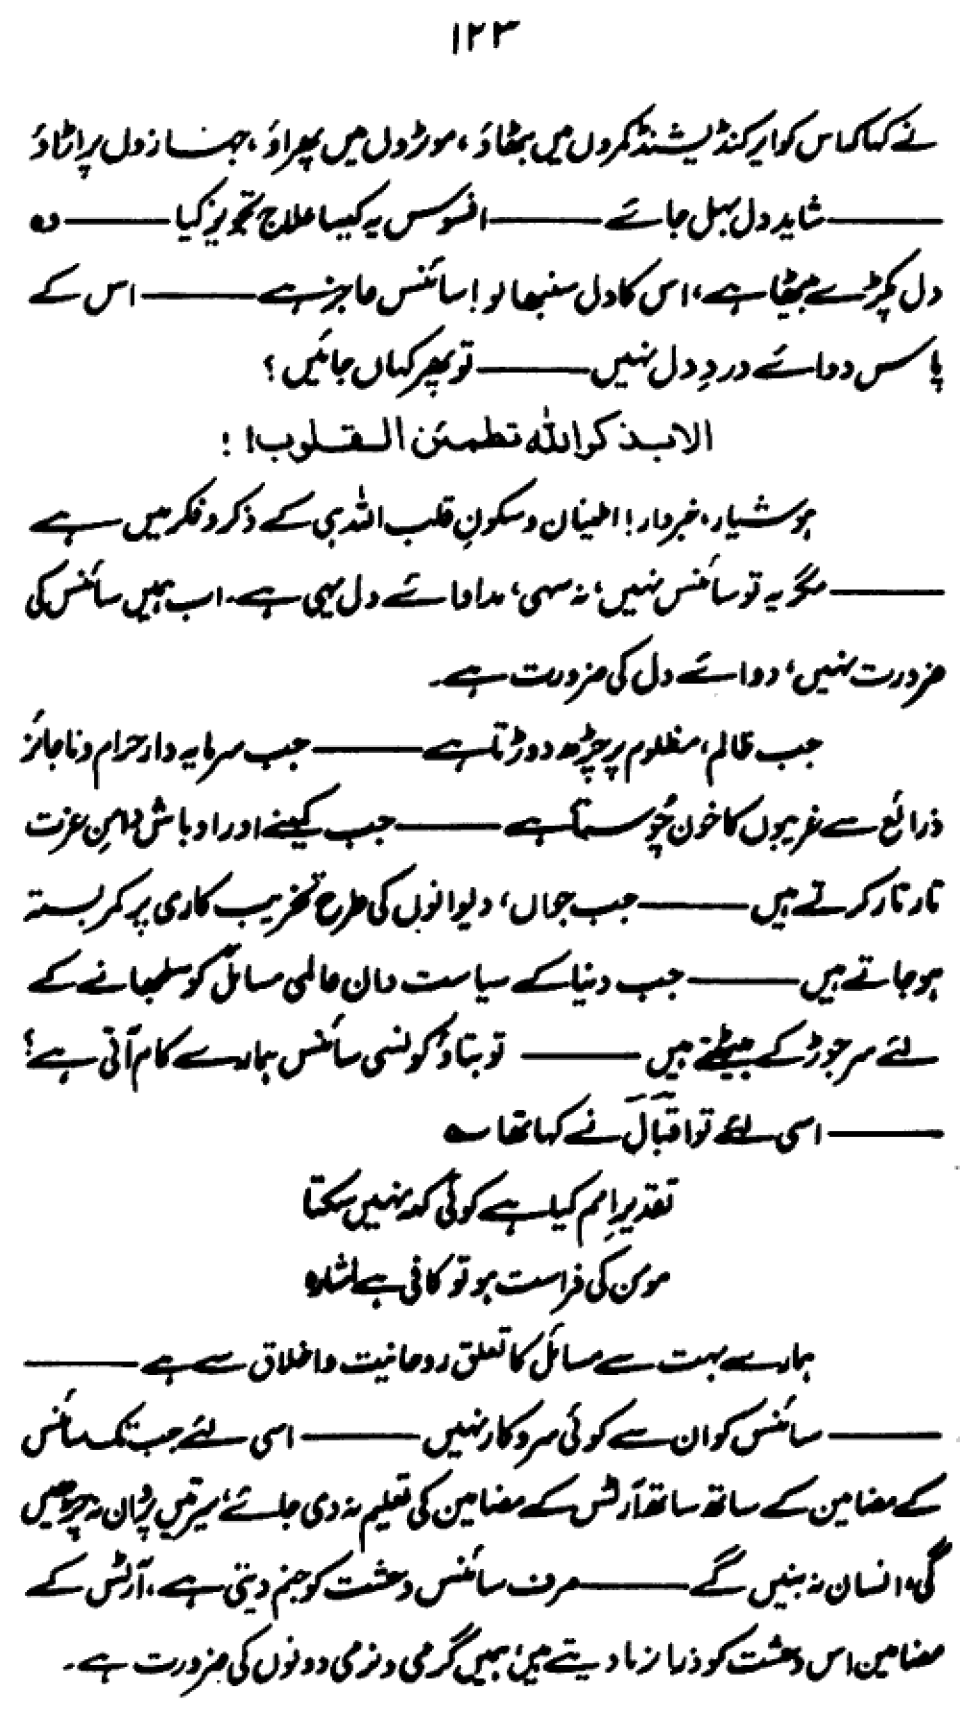 ۱۲۳
نے کہا کہ اس کو ایرکنڈیشنڈ کمروں میں بٹھاؤ، موٹر وں میں پھراؤ، جہازوں پر اڑاؤ
——— شاید دل بہل جائے ——— افسوس یہ کیسا علاج تجویز کیا ——— وہ
دل پکڑے بیٹھا ہے، اس کا دل سنبھالو! سائنس عاجز ہے ——— اس کے
پاس دوائے دردِ دل نہیں ——— تو پھر کہاں جائیں؟
الا بذکر اللہ تطمئن القلوب! :
ہوشیار، خبردار! اطمینان و سکونِ قلب اللہ ہی کے ذکر و فکر میں ہے
——— مگر یہ تو سائنس نہیں، نہ سہی، مداوائے دل یہی ہے۔ اب ہمیں سائنس کی
ضرورت نہیں، دوائے دل کی ضرورت ہے۔
جب ظالم، مظلوم پر چڑھ دوڑتا ہے ——— جب سرمایہ دار حرام و ناجائز
ذرائع سے غریبوں کا خون چُوستا ہے ——— جب کمینے اور اوباش دامنِ عزت
تار تار کرتے ہیں ——— جب جواں، دیوانوں کی طرح تخریب کاری پر کمربستہ
ہو جاتے ہیں ——— جب دنیا کے سیاست دان عالمی مسائل کو سلجھانے کے
لئے سر جوڑ کے بیٹھتے ہیں ——— تو بتاؤ کونسی سائنس ہمارے کام آتی ہے؟
——— اسی لئے تو اقبال نے کہا تھا ؎
تقدیرِ امم کیا ہے کوئی کہہ نہیں سکتا
مومن کی فراست ہو تو کافی ہے اشارہ
ہمارے بہت سے مسائل کا تعلق روحانیت و اخلاق سے ہے ———
——— سائنس کو ان سے کوئی سروکار نہیں ——— اسی لئے جب تک سائنس
کے مضامین کے ساتھ ساتھ آرٹس کے مضامین کی تعلیم نہ دی جائے، سیرتیں پروان نہ چڑھیں
گی، انسان نہ بنیں گے ——— صرف سائنس دہشت کو جنم دیتی ہے، آرٹس کے
مضامین اس دہشت کو ذرا نرما دیتے ہیں، ہمیں گرمی و نرمی دونوں کی ضرورت ہے۔